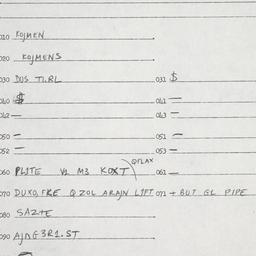 010 KOJMEN
020 KOJMENS
030 DUS TI.RL 031 $
040 $ 041 —
042 — 043 —
050 — 051 —
052 — 053 —
QFLAX
060 PLJTE V2 M3 KOXT 061 —
070 DUXO, FKE QZOL ARAJN LJFT 071 + BUT GL PIPE
080 SAZTE
090 AJNG3R1.ST